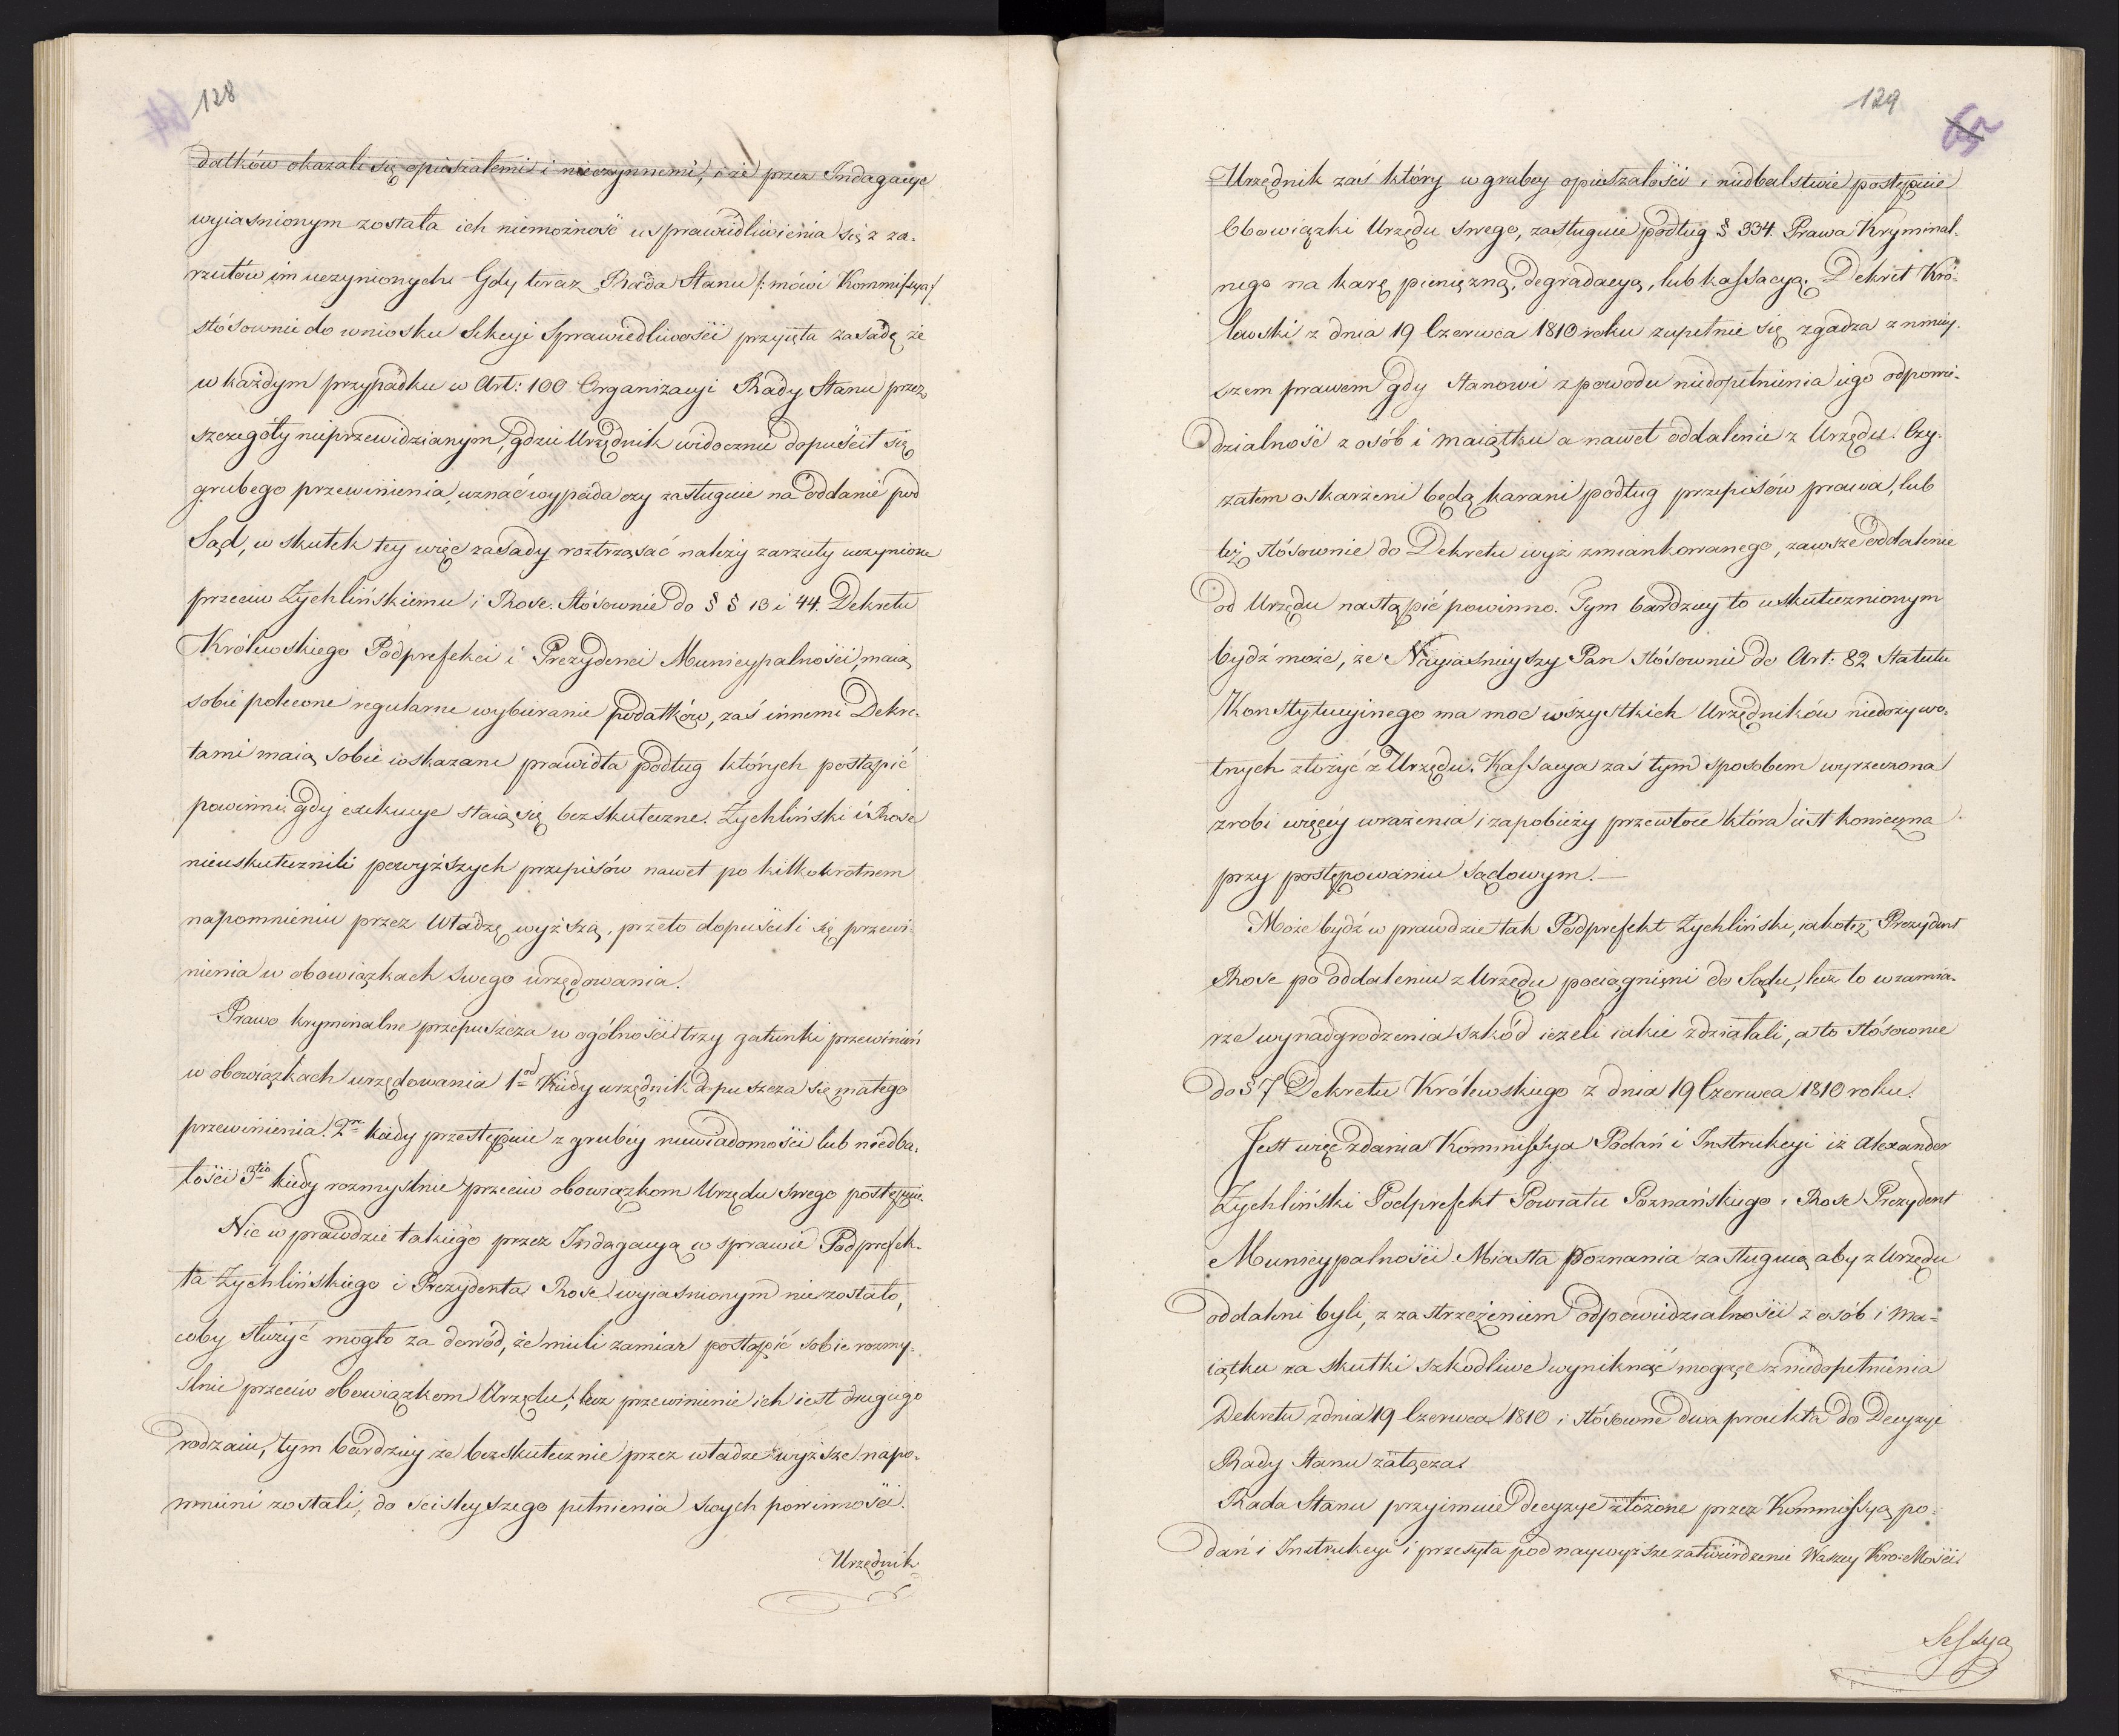 128
datków okazali się opieszałemi i nieczynnemi, i że przez Indagacye
wyiasnionym została ich niemożność usprawiedliwienia się z za-
rzutów im uczynionych. Gdy teraz Rada Stanu /: mówi Kommissya :/
stósownie do wniosku Sekcyi Sprawiedliwości przyięta zasadę że
w każdym przypadku w Art: 100 Organizacyi Rady Stanu przez
szczegóły nieprzewidzianym, gdzie Urzędnik widocznie dopuścił się
grubego przewinienia, uznać wypada czy zasługuie na oddanie pod
Sąd, w skutek tey więc zasady roztrząsać należy zarzuty uczynione
przeciw Zychlińskiemu i Rose. Stósownie do § § 13 i 44. Dekretu
Królewskiego Podprefekci i Prezydenci Municypalności, maią
sobie polecone regularne wybieranie podatków, zaś innemi Dekre-
tami maią sobie wskazane prawidła podług których postąpić
powinni gdy exekucye staią się bezskuteczne. Zychliński i Rose
nieuskutecznili powyższych przepisów nawet po kilkokrotnem
napomnieniu przez Władzę wyższą, przeto dopuścili się przewi-
nienia w obowiązkach swego urzędowania.
Prawo kryminalne przepuszcza w ogólności trzy gatunki przewinień
w obowiązkach urzędowania 1od Kiedy urzędnik dopuszcza się małego
przewinienia. 2re kiedy przestępuie z grubéy niewiadomości lub niedba-
łości 3tio kiedy rozmyslnie przeciw obowiązkom Urzędu swego postępuie.
Nic w prawdzie takiego przez Indagacyą w sprawie Podprefek-
ta Zychlińskiego i Prezydenta Rose wyiasnionym nie zostało,
coby służyć mogło za dowód, że mieli zamiar postąpić sobie rozmy-
slnie przeciw obowiązkom Urzędu, lecz przewinienie ich iest drugiego
rodzaiu, tym bardziey że bezskutecznie przez władze wyższe napo-
mnieni zostali, do scisleyszego pełnienia swych powinności.
Urzędnik
129
65
Urzędnik zaś który w grubey opieszałości i niedbalstwie postępuie
Obowiązki Urzędu swego, zasługuie podług § 334. Prawa Kryminal-
nego na karę pieniężną, degradacyą, lub kassacyą. Dekret Kró-
lewski z dnia 19 Czerwca 1810 roku zupełnie się zgadza z niniey-
szem prawem gdy stanowi z powodu niedopełnienia iego odpowie-
dzialność z osób i maiątku a nawet oddalenie z Urzędu. Czy-
zatem oskarżeni będą karani podług przepisów prawa, lub
też stósownie do Dekretu wyż zmiankowanego, zawsze oddalenie
od Urzędu nastąpić powinno. Tym bardziey to uskutecznionym
bydź może, że Nayiaśnieyszy Pan stósownie do Art: 82 Statutu
Konstytucyinego ma moc wszystkich Urzędników niedożywo-
tnych złożyć z Urzędu. Kassacya zaś tym sposobem wyrzeczona
zrobi więcéy wrażenia i zapobieży przewłoce która iest konieczna
przy postępowaniu sądowym.—
Może bydź w prawdzie tak Podprefekt Zychliński, iakoteż Prezydent
Rose po oddaleniu z Urzędu pociągnieni do Sądu, lecz to w zamia-
rze wynadgrodzenia szkód ieżeli iakie zdziałali, a to stósownie
do § 7 Dekretu Królewskiego z dnia 19 Czerwca 1810 roku.
Jest więc zdania Kommissya Podań i Instrukcyi iż Alexander
Zychliński Podprefekt Powiatu Poznańskiego i Rose Prezydent
Municypalności Miasta Poznania zasługuią aby z Urzędu
oddaleni byli, z zastrzeżeniem odpowiedzialności z osób i ma-
iątku za skutki szkodliwe wyniknąć mogące z niedopełnienia
Dekretu z dnia 19 Czerwca 1810 i stósowne dwa proiekta do Decyzyi
Rady Stanu załącza.
Rada Stanu przyimuie decyzye złożone przez Kommissyą po-
dań i Instrukcyi i przesyła pod naywyższe zatwierdzenie Waszey Kro: Mości.
Sessya